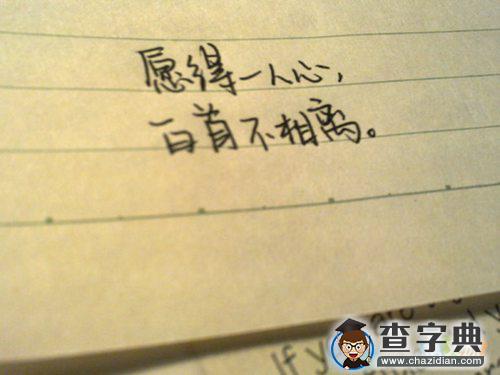 愿得一人心，
百首不相离。
If
查字典
www.chazidian.com